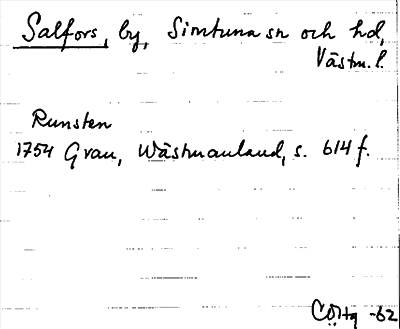 Salfors, by, Simtuna sn och hd,
Västm. l.
Runsten
1754 Grau, Wästmanland, s. 614 f.
-62